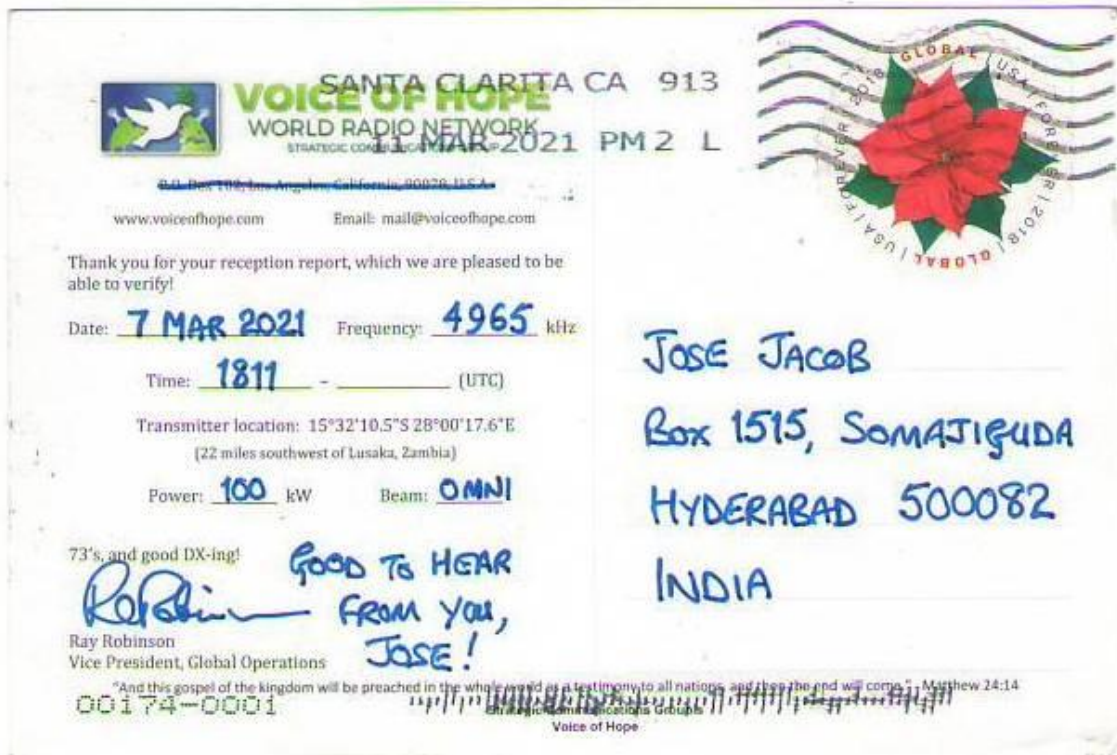 SANTA CLARITA CA 913
11 MAR 2021 PM 2 L
VOICE OF HOPE
WORLD RADIO NETWORK
P.O. Box 102, Los Angeles, California, 90078, U.S.A.
www.voiceofhope.com Email: mail@voiceofhope.com
Thank you for your reception report, which we are pleased to be
able to verify!
Date: 7 MAR 2021 Frequency: 4965 kHz
Time: 1811 - (UTC)
Transmitter location: 15°32'10.5"S 28°00'17.6"E
(22 miles southwest of Lusaka, Zambia)
Power: 100 kW Beam: OMNI
73's, and good DX-ing!
GOOD TO HEAR
FROM YOU,
JOSE!
Ray Robinson
Vice President, Global Operations
"And this gospel of the kingdom will be preached in the whole world as a testimony to all nations, and then the end will come." - Matthew 24:14
00174-0001
Voice of Hope
GLOBAL | USA | FOREVER | 2018 | GLOBAL | USA | FOREVER | 2018
JOSE JACOB
BOX 1515, SOMAJIGUDA
HYDERABAD 500082
INDIA